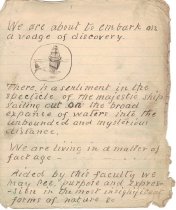 We are about to embark on
a voage of discovery.
There is a sentiment in the
spectacle of the majestic ship
sailing out on the broad
expanse of waters into the
unbounded and mysterious
distance.
We are living in a matter of
fact age -
Aided by this faculty we
may see purpose and expres-
sion in the most insignificant
forms of nature &